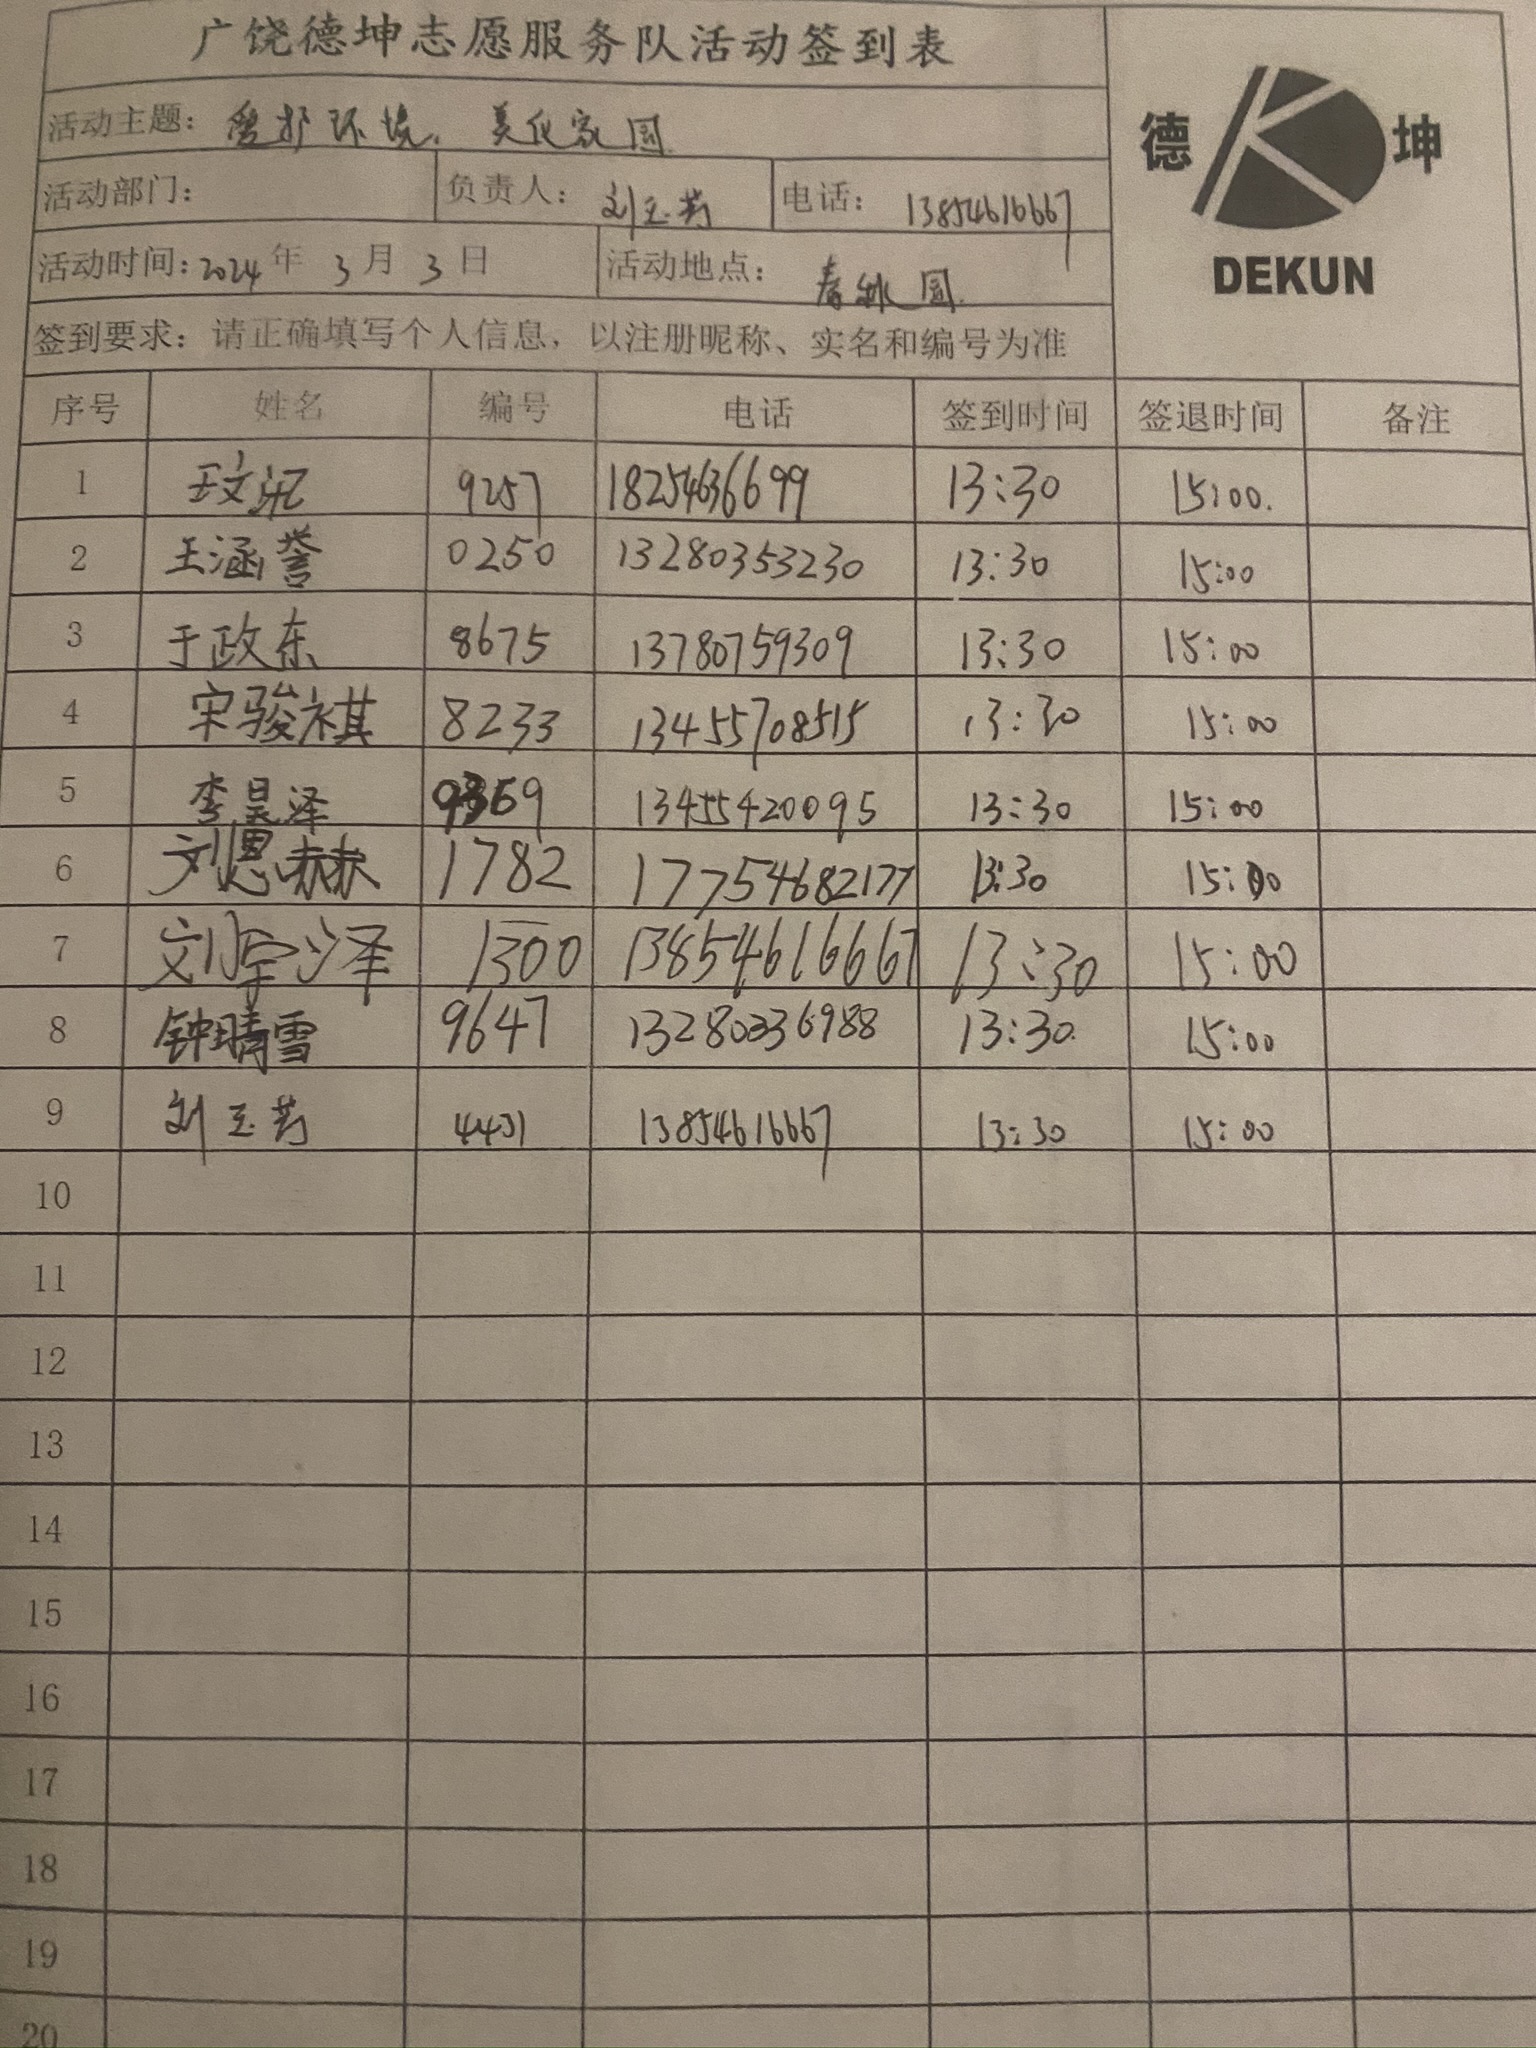 广饶德坤志愿服务队活动签到表
德 坤
DEKUN
活动主题：爱护环境，美化家园
活动部门： 负责人：刘玉芳 电话：13854616667
活动时间：2024年3月3日 活动地点：春秋园
签到要求：请正确填写个人信息，以注册昵称、实名和编号为准
序号 姓名 编号 电话 签到时间 签退时间 备注
1 9257 18254636699 13:30 15:00
2 王涵誉 0250 13280353230 13:30 15:00
3 于政东 8675 13780759309 13:30 15:00
4 宋骏祺 8233 13455708515 13:30 15:00
5 李昊泽 13455420095 13:30 15:00
6 刘恩赫 1782 17754682177 13:30 15:00
7 刘宇泽 1300 13854616667 13:30 15:00
8 钟晴雪 9647 13280336988 13:30 15:00
9 刘玉芳 13854616667 13:30 15:00
10
11
12
13
14
15
16
17
18
19
20